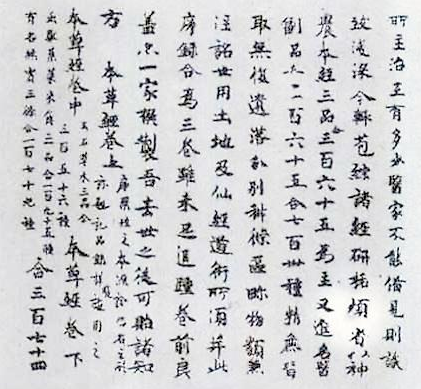 所主治互有多少醫家不能備見則識
致淺深今輒苞綜諸經研括煩省以神
農本經三品合三百六十五為主又進名醫
副品亦三百六十五合七百卅種精麁皆
取無復遺落分別科條區畛物類兼
注詺世用土地及仙經道術所須并此
序錄合為三卷雖未足追踵前良
蓋亦一家撰製吾去世之後可貽諸知
方 本草經卷上 序藥性之本源詮病名之形
診題記品錄詳覽施用之
本草經卷中 玉石草木三品合
三百五十六種 本草經卷下
虫獸菓菜米食三品合一百九十五種
有名無實三條合一百七十九種 合三百七十四